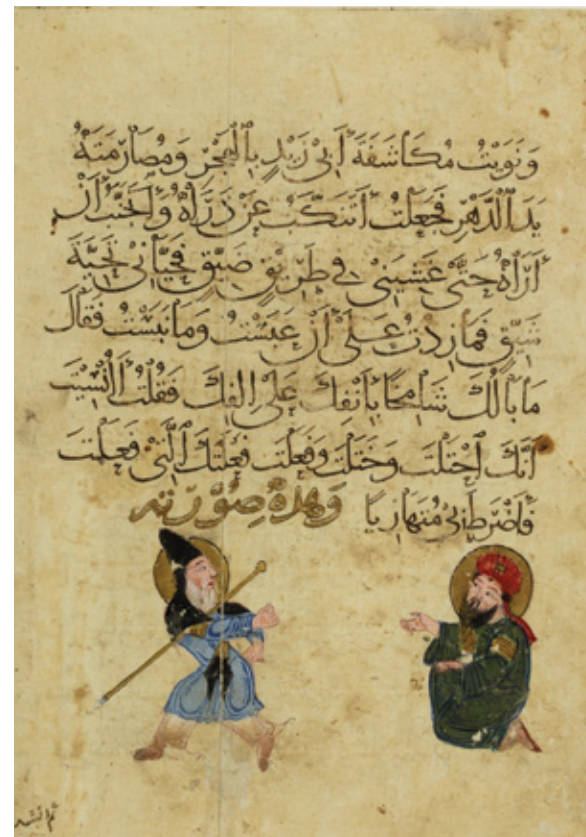 وَنَوَيْتُ مُكَاشَفَةَ أَبِي زَيْدٍ بِالْهَجْرِ وَمُصَارَمَتَهُ
يَدَ الدَّهْرِ فَجَعَلْتُ أَتَنَكَّبُ عَنْ ذَرَاهُ وَأَتَجَنَّبُ أَنْ
أَرَاهُ حَتَّى غَشِيَنِي فِي طَرِيقٍ ضَيِّقٍ فَحَيَّانِي تَحِيَّةَ
شَيِّقٍ فَمَا زِدْتُ عَلَى أَنْ عَبَسْتُ وَمَا نَبَسْتُ فَقَالَ
مَا بَالُكَ شَامِخًا بِأَنْفِكَ عَلَى إِلْفِكَ فَقُلْتُ أَنَسِيتَ
أَنَّكَ احْتَلْتَ وَخَتَلْتَ وَفَعَلْتَ فَعْلَتَكَ الَّتِي فَعَلْتَ
فَأَضْرَطَ بِي مُتَهَازِيًا وَهَذِهِ صُورَته
ثم انشد